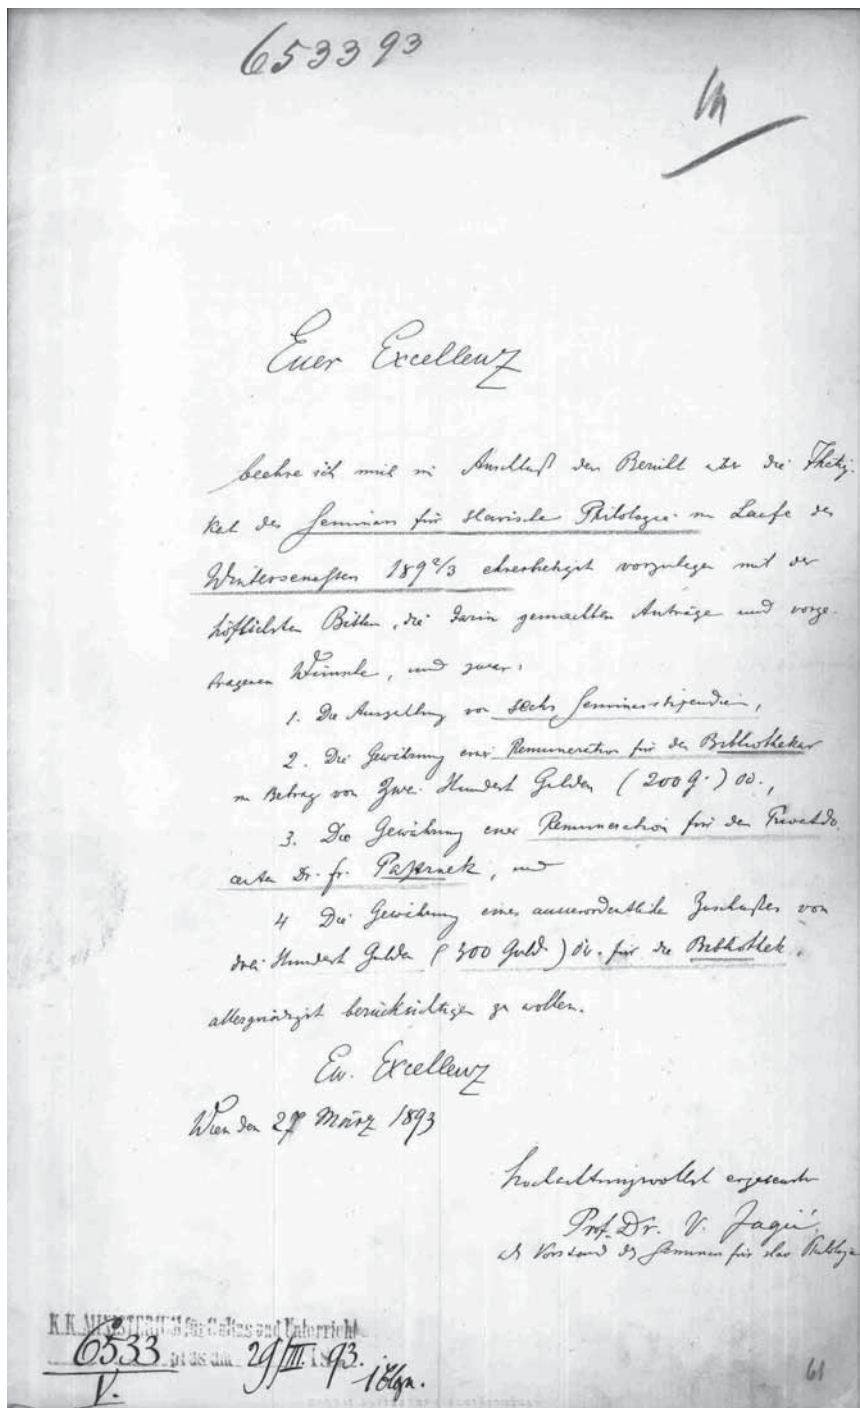 6533 93
Euer Excellenz
beehre ich mich im Anschluß den Bericht über die Thätig-
keit des Seminars für slavische Philologie im Laufe des
Wintersemesters 1892/3 ehrerbietigst vorzulegen mit der
höflichsten Bitten, die darin gemachten Anträge und vorge-
tragenen Wünsche, und zwar:
1. Die Auszahlung von sechs Seminarstipendien,
2. Die Gewährung einer Remuneration für den Bibliothekar
im Betrag von Zwei Hundert Gulden (200 g.) öw.,
3. Die Gewährung einer Remuneration für den Privatdo-
centen Dr. Fr. Pastrnek, und
4 Die Gewährung eines ausserordentlichen Zuschußes von
drei Hundert Gulden (300 Guld) öw. für die Bibliothek,
allergnädigst berücksichtigen zu wollen.
Ew. Excellenz
Wien den 27 März 1893
hochachtungsvollst ergebenster
Prof. Dr. V. Jagić
als Vorstand des Seminars für slav Philologie
K.K. MINISTERIUM für Cultus und Unterricht
6533 29/III. 93.
V. 1 Blgn.
61